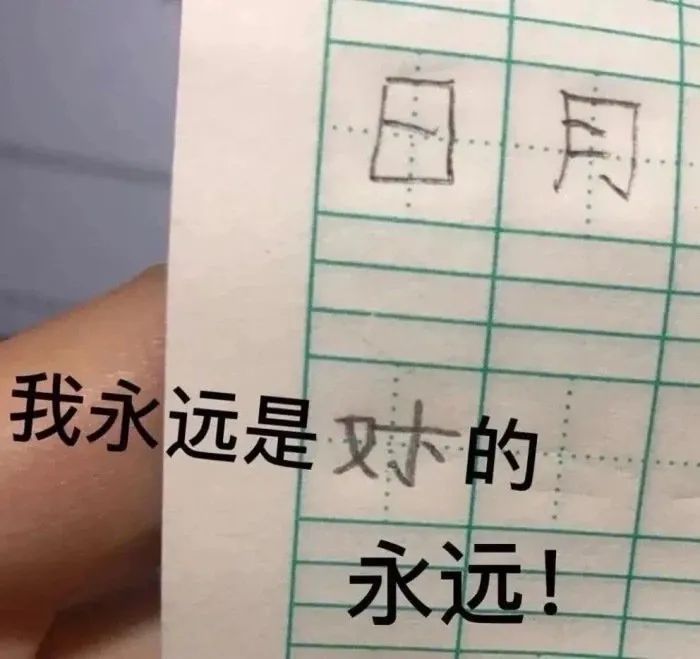 日 月
我永远是对的
永远!